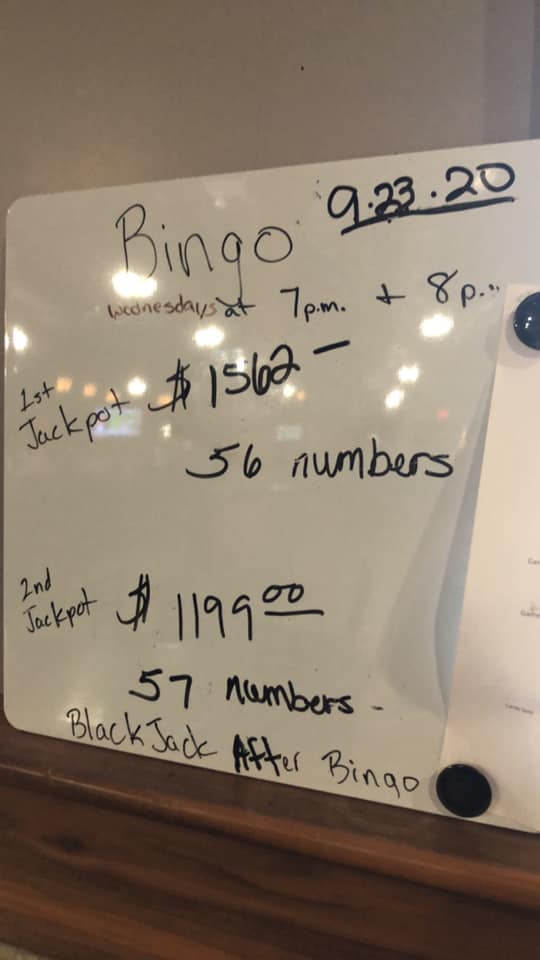 9.23.20
Bingo
Wednesdays at 7p.m. + 8p.m.
1st
Jackpot $1562 —
56 numbers
2nd
Jackpot $1199 00
57 numbers -
BlackJack After Bingo